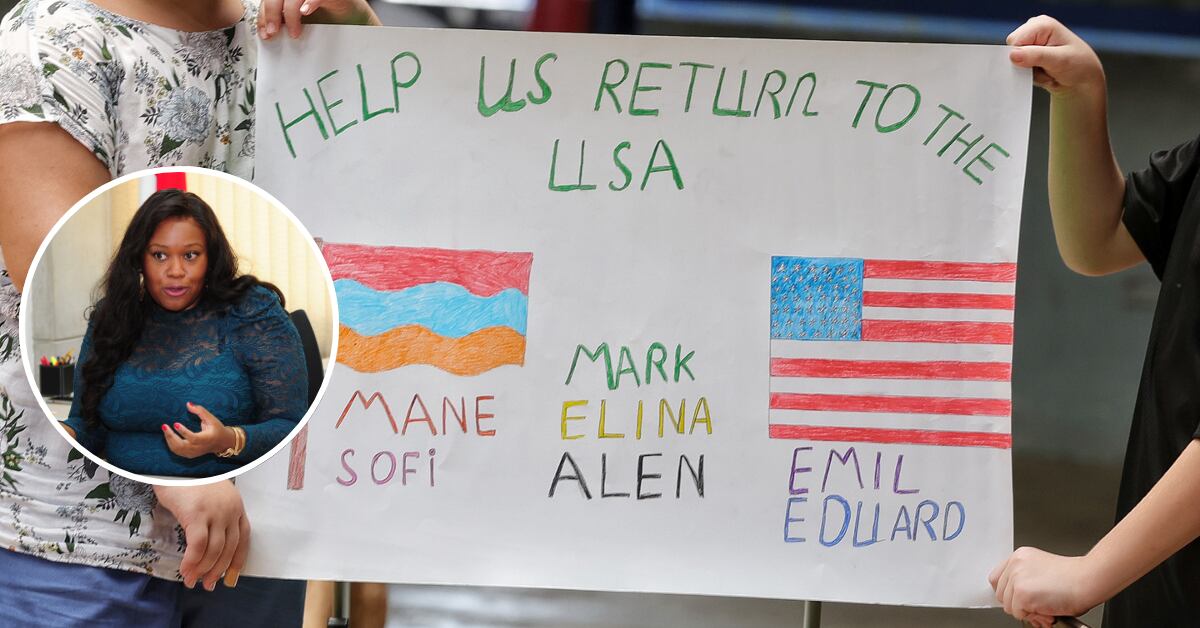 HELP US RETURN TO THE
USA
MANE
SOFi
MARK
ELINA
ALEN
EMIL
EDUARD